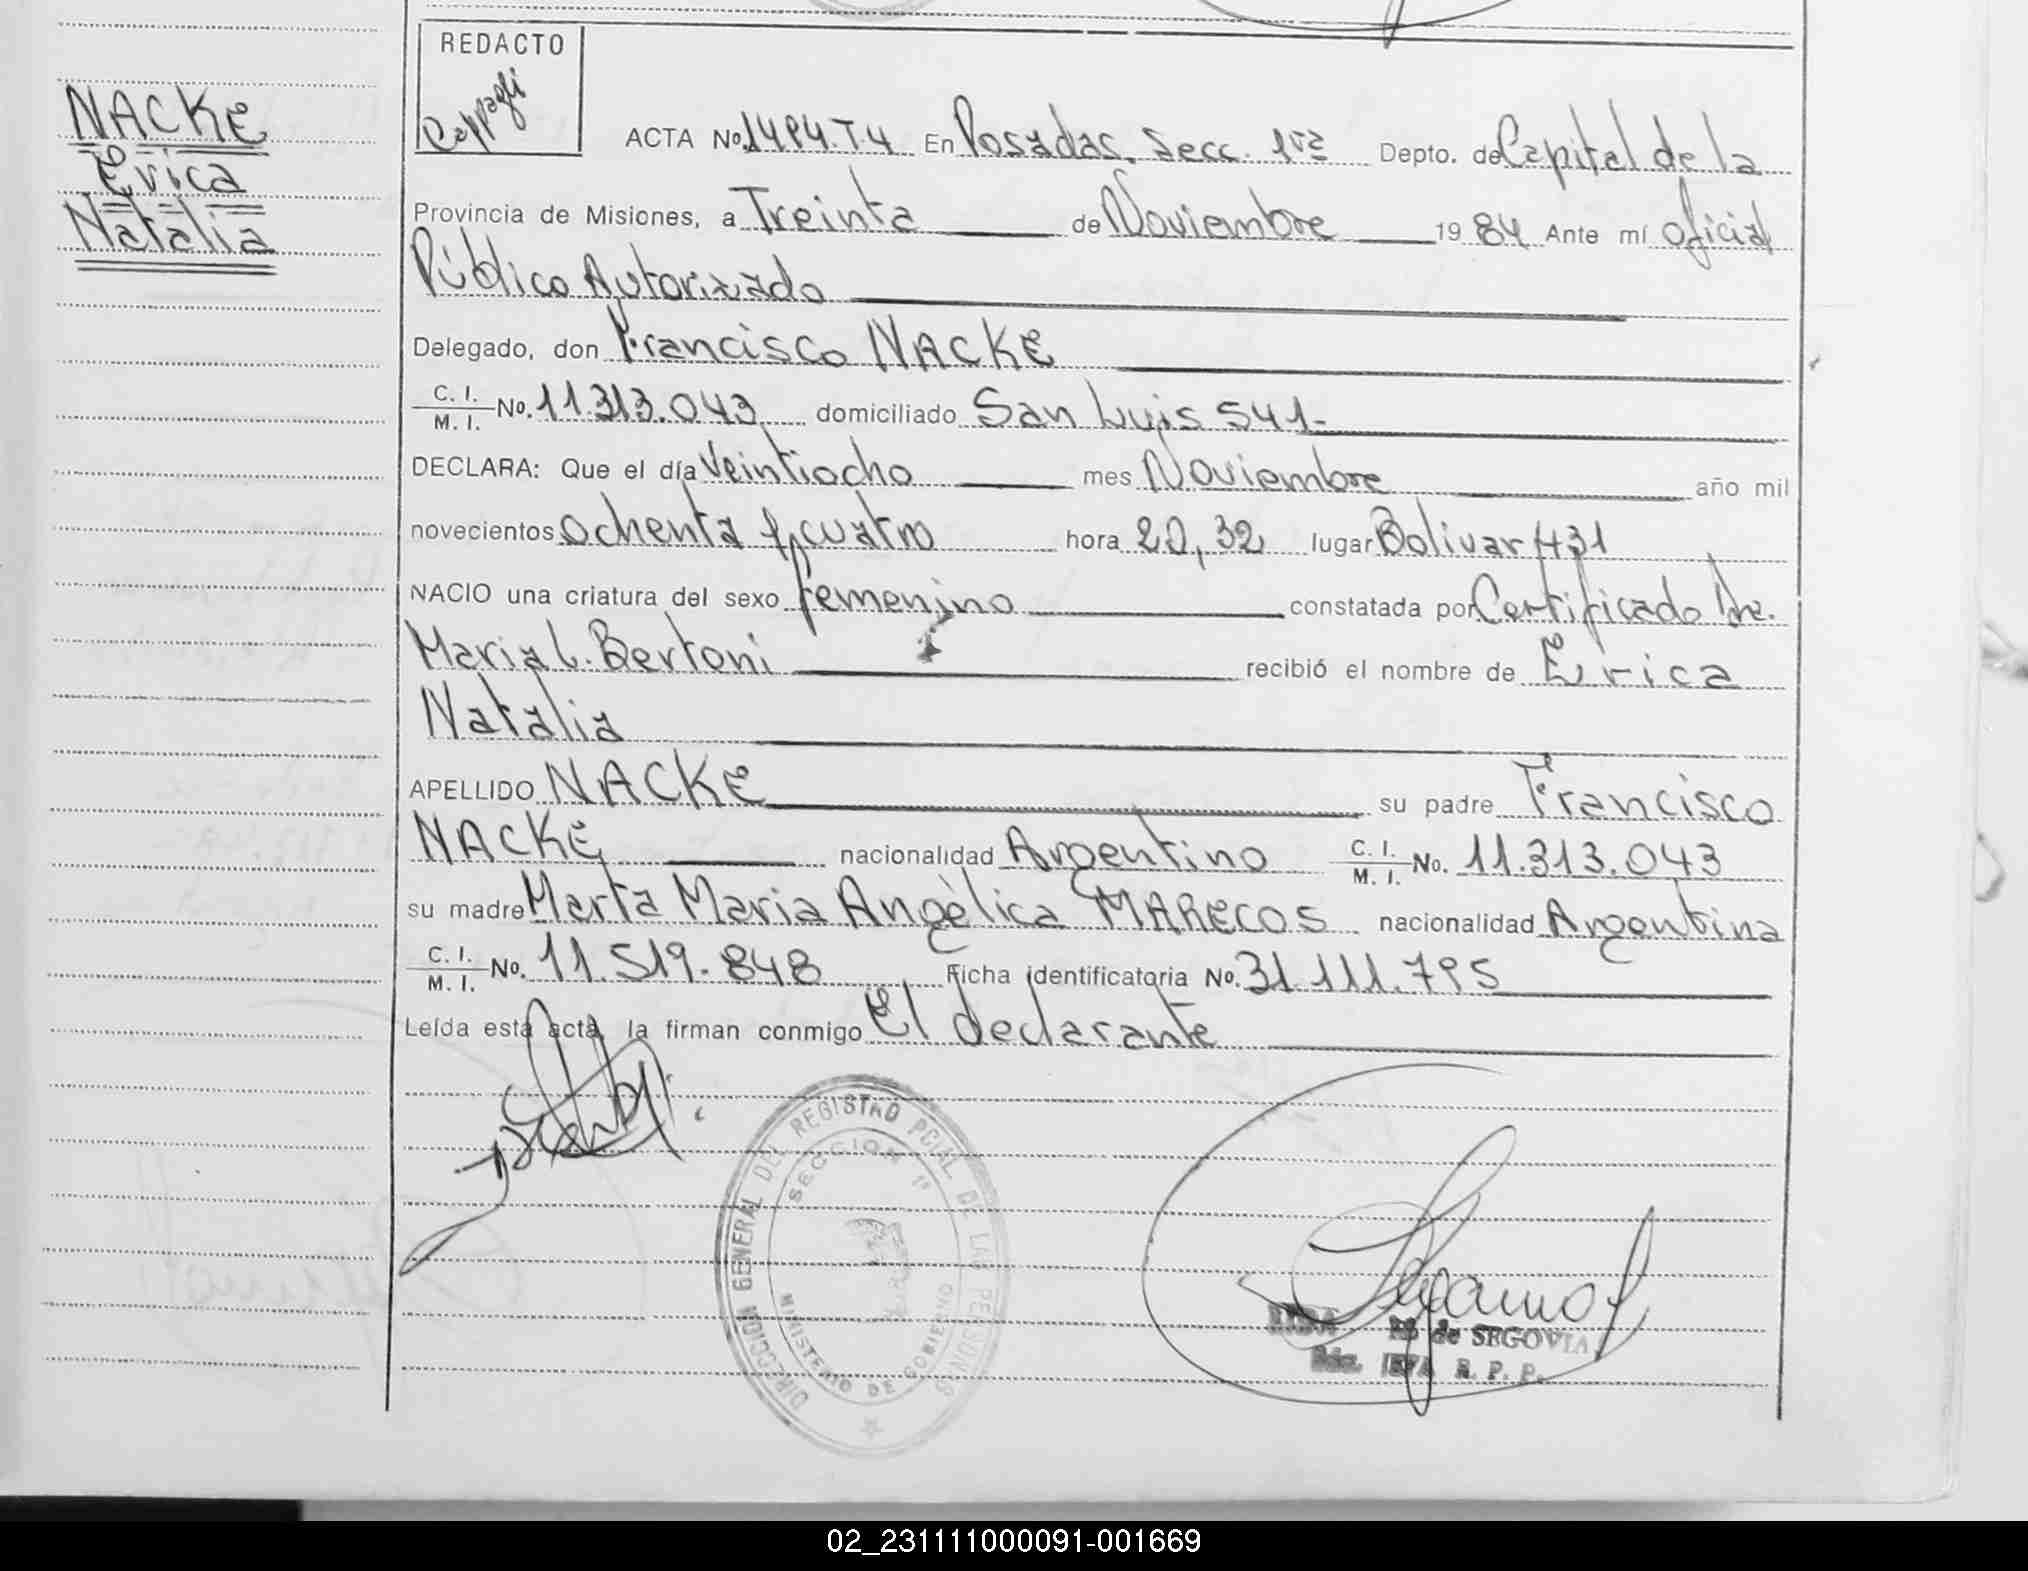 NACKE
Erica
Natalia
REDACTO
ACTA No. 1494.T.4 En Posadas, Secc. 1ra Depto. de Capital de la
Provincia de Misiones, a Treinta de Noviembre 1984 Ante mí oficial
Público Autorizado
Delegado, don Francisco NACKE
C. I. / M. I. No. 11.313.043 domiciliado San Luis 541-
DECLARA: Que el día Veintiocho mes Noviembre año mil
novecientos ochenta y cuatro hora 20,32 lugar Bolivar 431
NACIO una criatura del sexo femenino constatada por Certificado
Maria L. Bertoni recibió el nombre de Erica
Natalia
APELLIDO NACKE su padre Francisco
NACKE nacionalidad Argentino C. I. / M. I. No. 11.313.043
su madre Marta Maria Angèlica MARECOS nacionalidad Argentina
C. I. / M. I. No. 11.519.848 Ficha identificatoria No. 31.111.795
Leída esta acta, la firman conmigo El declarante
DIRECCION GENERAL DEL REGISTRO PCIAL DE LAS PERSONAS
SECCION 1ª
MINISTERIO DE GOBIERNO
de SEGOVIA
R. P. P.
02_231111000091-001669